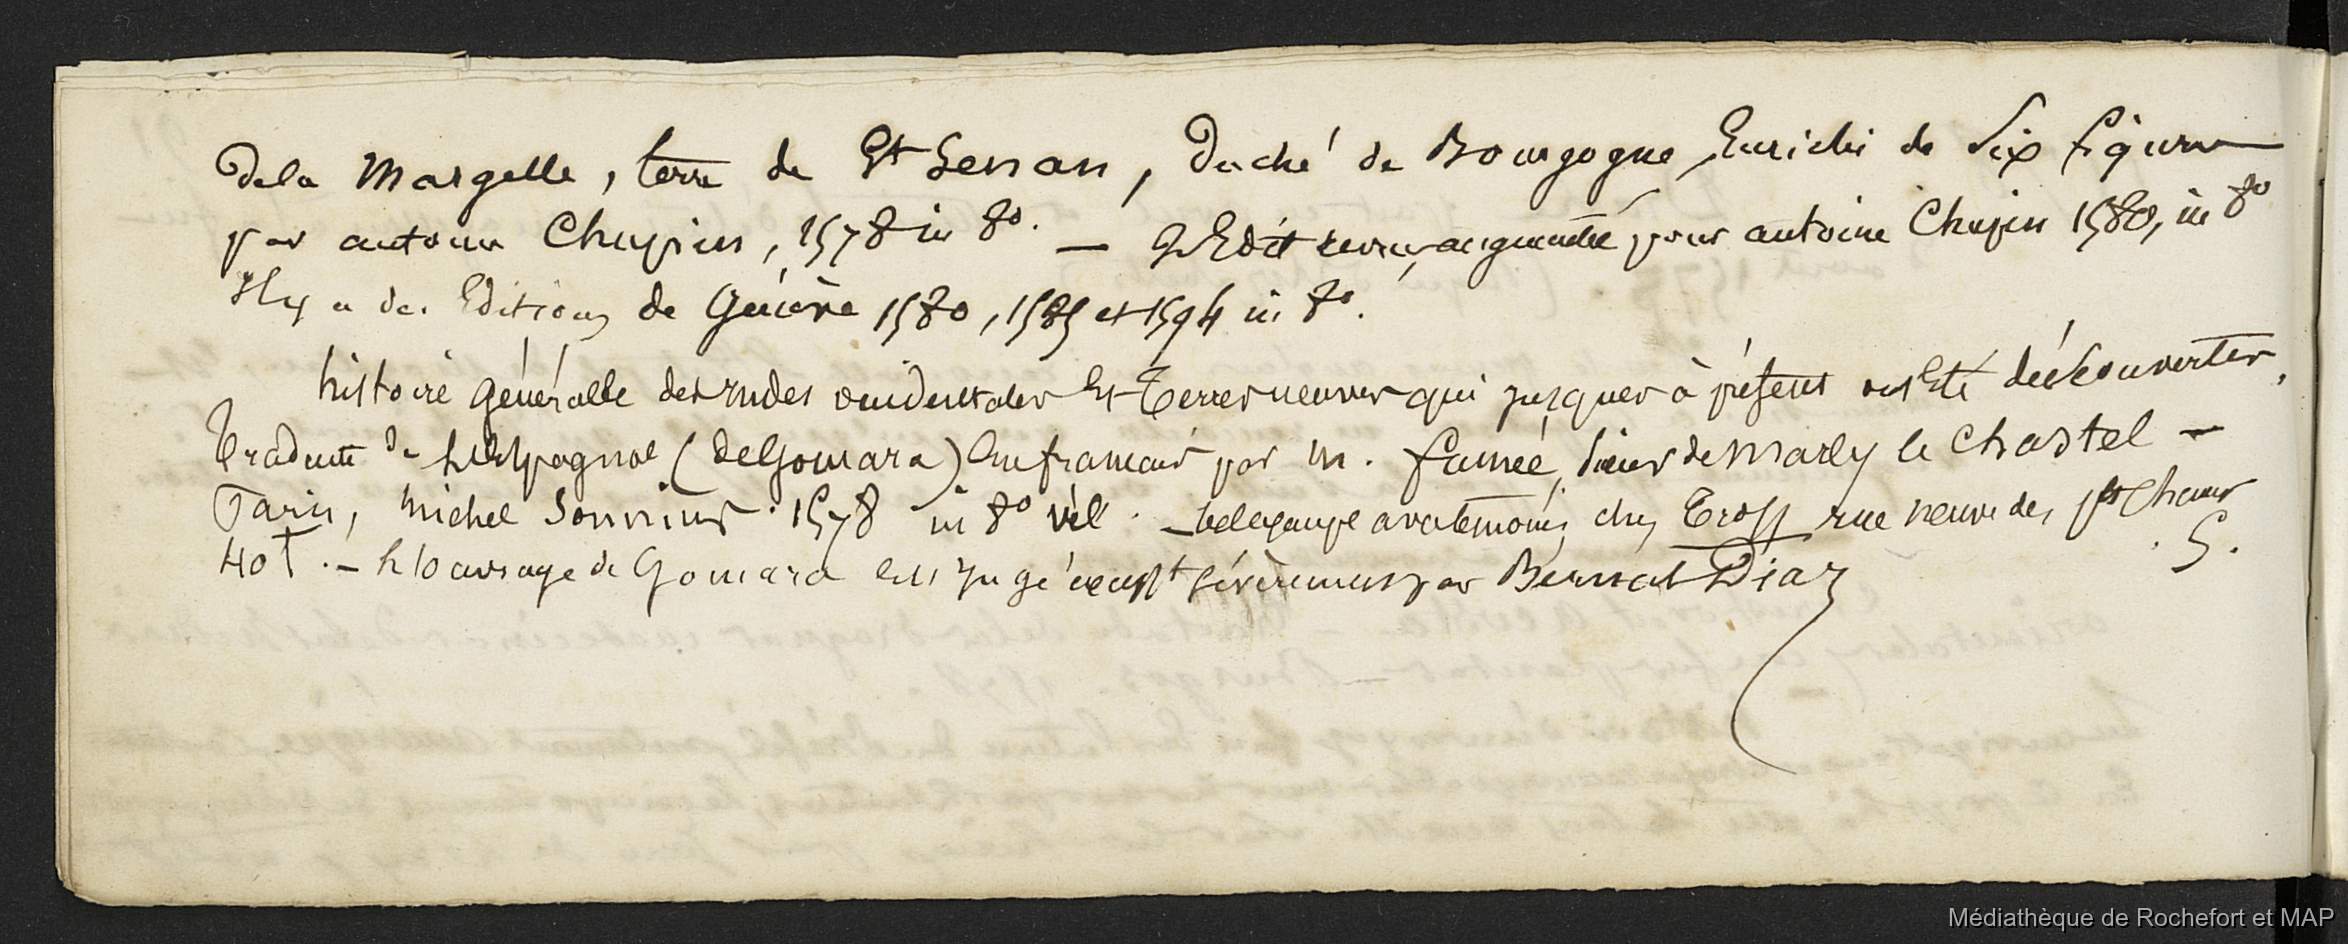 De la Margelle, terre de St Senan, Duché de Bourgogne Enrichi de Six figures
par antoine Chupin, 1578 in 8º. — 2e Edit revue, augmentée pour antoine Chupin 1580, in 8º
Il y a des Editions de Genève 1580, 1585 et 1594 in 8º.
histoire généralle des Indes occidentales Et Terres neuves qui jusques à présent ont Esté découvertes,
Traduite de L'Espagnol (de Gomara) En français par M. fumée, Sieur de Marly le Chastel —
Paris, Michel Sonnius. 1578 in 8º vél. — bel exempe avec témoins chez Tross rue neuve des pts Champs
40f. — L'ouvrage de Gomara Est jugé sévèrement par Bernal Diaz
. 5.
Médiathèque de Rochefort et MAP